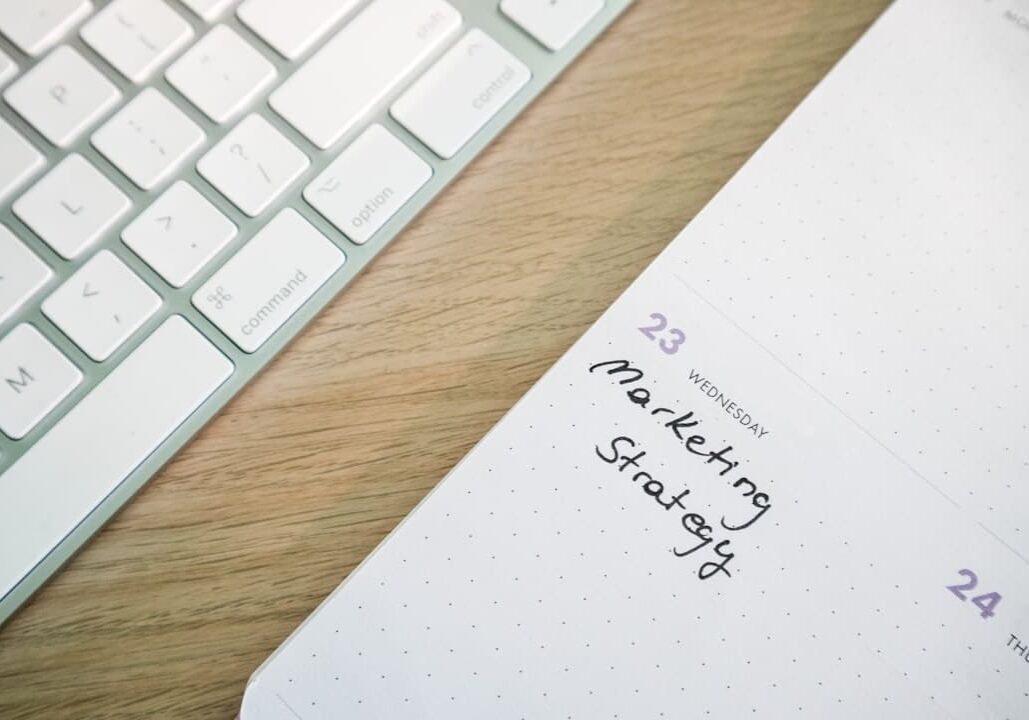 P
L
M
?
/
>
.
<
,
shift
control
option
command
23
WEDNESDAY
Marketing
Strategy
24